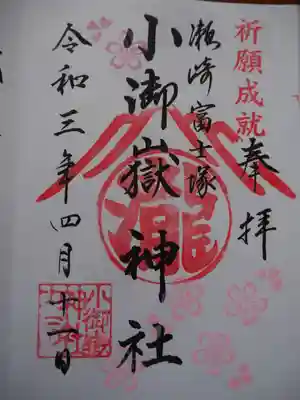 祈願成就
奉拝
瀬崎富士塚
小御嶽神社
令和三年四月十一日